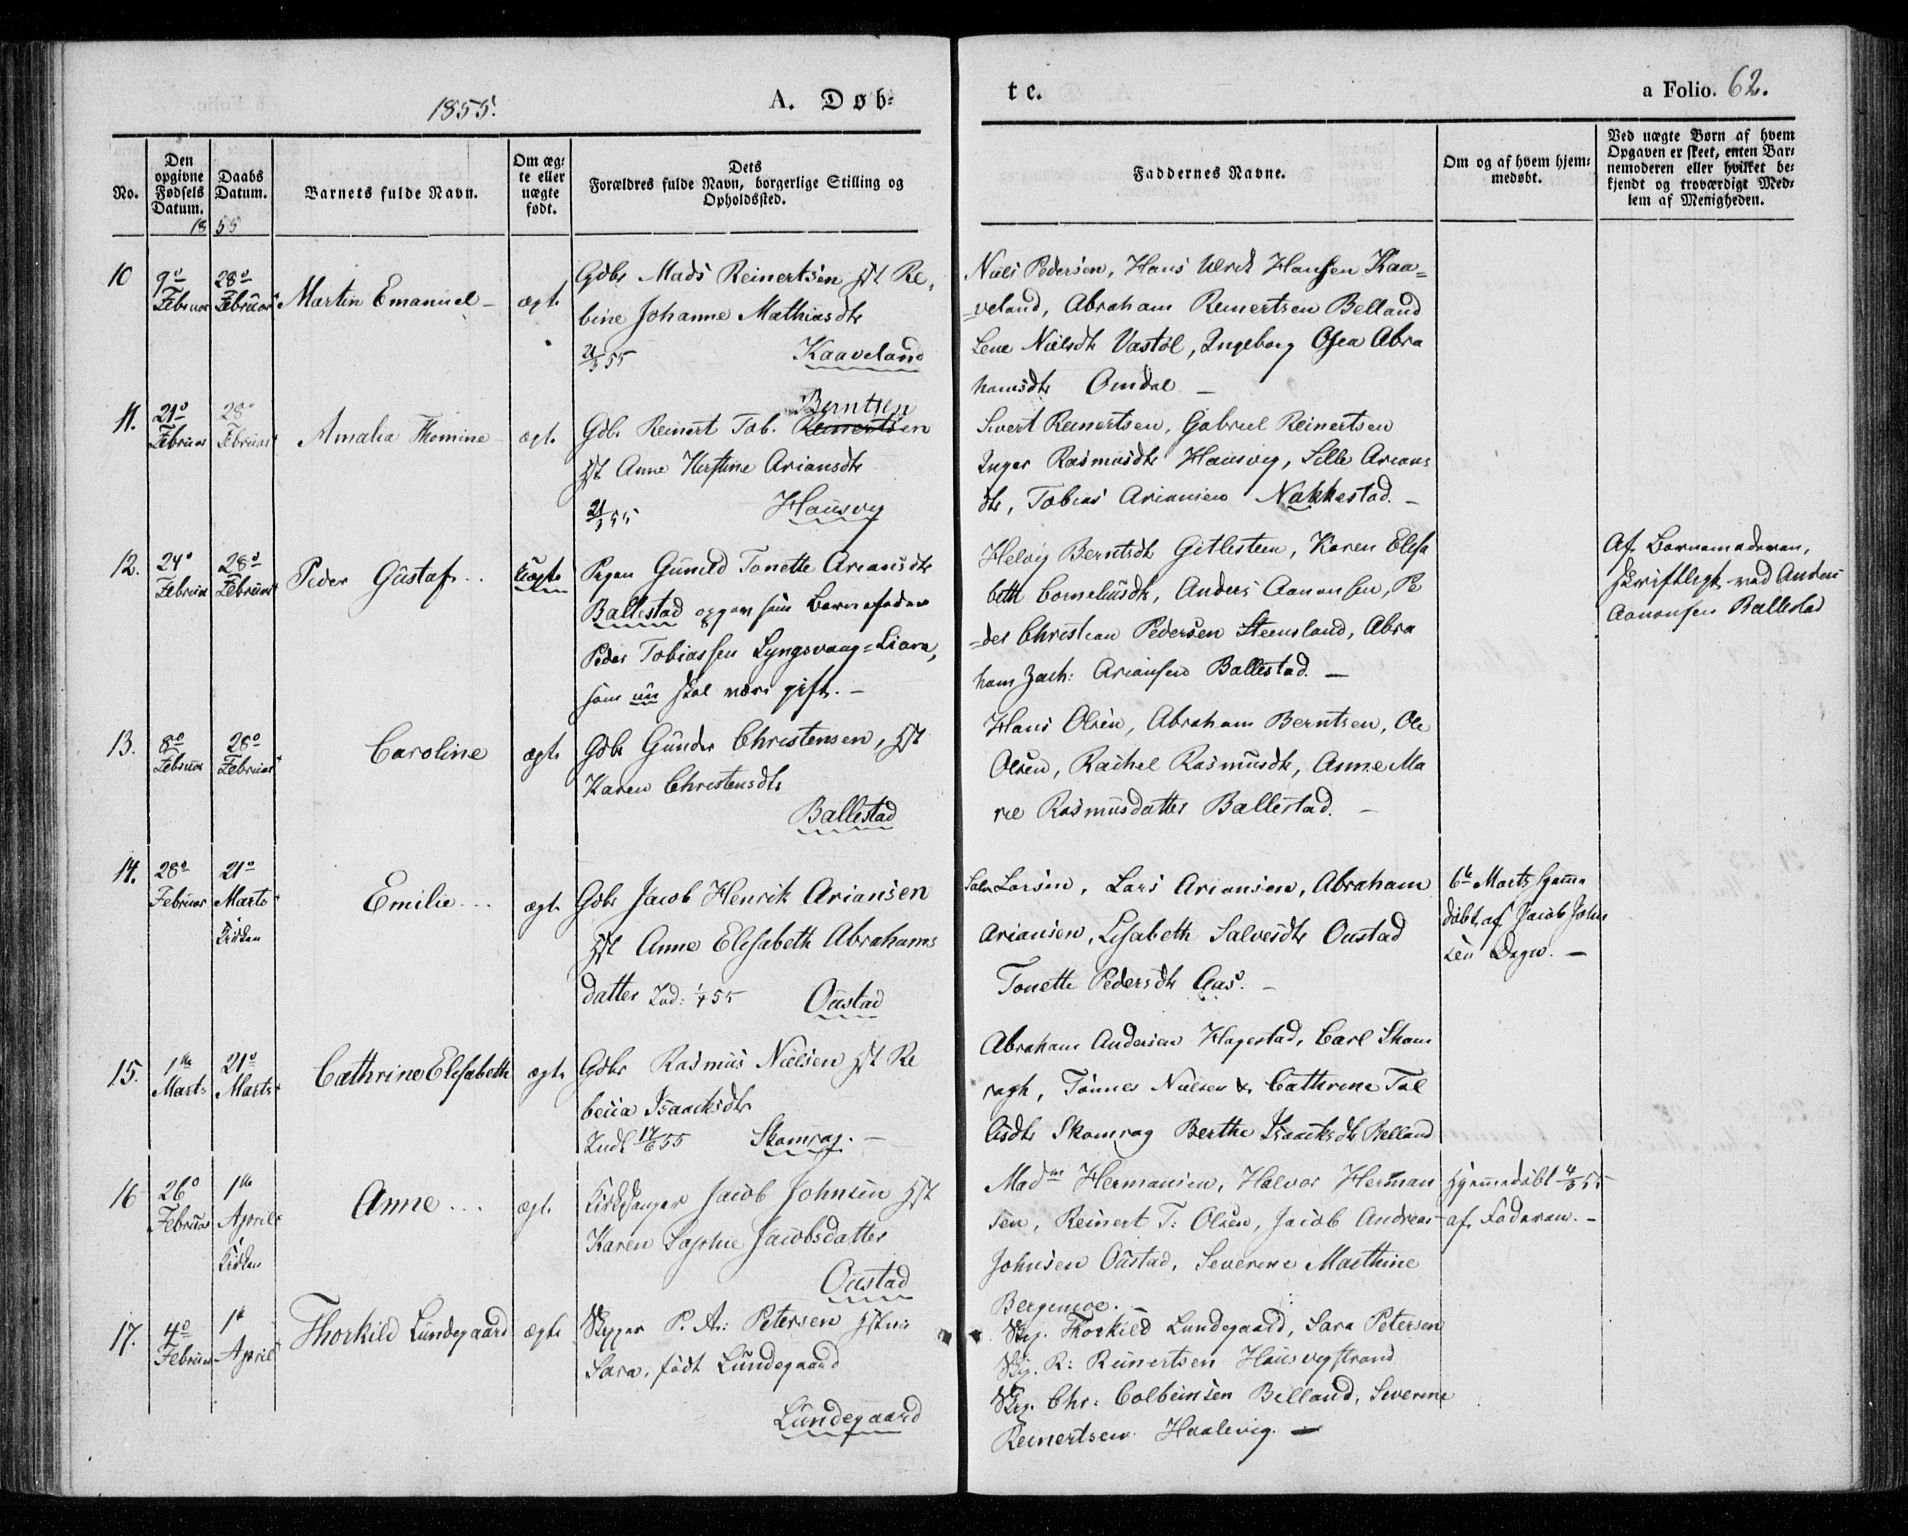 1855.
A. Døb-
te.
a Folio. 62.
No.
Den opgivne Fødsels Datum.
Daabs Datum.
Barnets fulde Navn.
Om ægte eller uægte født.
Dets Forældres fulde Navn, borgerlige Stilling og Opholdssted.
Faddernes Navne.
Om og af hvem hjemmedøbt.
Ved uægte Børn af hvem Opgaven er skeet, enten Barnemoderen eller hvilket bekjendt og troværdigt Medlem af Menigheden.
18 55
10
9de Februar
28de Februar
Martin Emanuel
ægte
Gdbr Mads Reinertsen Hst Re,
bine Johanne Mathiasdtr
21/3 55 Kaaveland
Niels Pedersen, Hans Ulrik Hansen Kaa=
=veland, Abraham Reinertsen Belland
Lene Nielsdtr Vastøl, Ingeborg Osea Abra
hamsdtr Omdal
11.
21de Februar
28de Februar
Amalia Thomine
ægte
Berntsen
Gdbr Reinert Tob. Reinertsen
Hst Anne Kirstine Ariansdtr
21/3 55 Hausvig
Sivert Reinertsen, Gabriel Reinertsen
Inger Rasmusdtr Hausvig, Sille Arians
dtr, Tobias Ariansen Nakkestad.
12.
24de Februar
28de Februar
Peder Gustaf
Uægte
Pigen Gunild Tonette Ariansdtr
Ballestad opgav som Barnefader
Peder Tobiassen Lyngsvaag=Liane,
som nu skal være gift.
Helvig Berntsdtr Gitlesteen, Karen Elisa
beth Corneliusdtr, Anders Aanonsen, Pe
=der Christian Pedersen Steensland, Abra
ham Zach: Ariansen Ballestad.
Af Barnemoderen,
skriftligt ved Anders
Aanonsen Ballestad
13.
8de Februar
28de Februar
Caroline
ægte
Gdbr Gunder Christensen, Hst
Karen Christensdtr
Ballestad
Hans Olsen, Abraham Berntsen, Ole
Olsen, Rachel Rasmusdtr, Anne Ma
rie Rasmusdatter Ballestad.
14.
28de Februar
21de Marts Kirken
Emilie
ægte
Gdbr Jacob Henrik Ariansen
Hst Anne Elisabeth Abrahams
datter Ind: 1/4 55 Oustad
Salve Larsen, Lars Ariansen, Abraham
Ariansen, Lisabeth Salvesdtr Oustad
Tonette Pedersdtr Aas.
6te Marts hjemme
døbt af Jacob John
sen
15.
1ste Marts
21de Marts
Cathrine Elisabeth
ægte
Gdbr Rasmus Nielsen Hst Re
becca Isaacksdtr
Indl 17/6 55 Skomrag.
Abraham Andersen Hagestad, Carl Skom
ragh, Tønnes Nielsen & Cathrine Tol
lisdtr Skomrag Berthe Isaacksdtr Belland
16
26de Februar
1ste April Kirken
Anne
ægte
Kirkesanger Jacob Johnsen Hst
Karen Sophie Jacobsdatter
Oustad
Madme Hermansen, Halvor Herman
sen, Reinert T: Olsen, Jacob Andreas
Johnsen Oustad, Severine Marthine
Hjemmedøbt 4/3 55
af Faderen.
17.
4de Februar
1ste April
Thorkild Lundegaard
ægte
Skipper P. A: Petersen Hstru
Sara, født Lundegaard
Lundegaard
Skp. Thorkild Lundegaard, Sara Petersen
Skp. R: Reinertsen Hausvigstrand
Skp. Chr: Colbeinsen Belland, Severine
Reinertsen Haalevig.